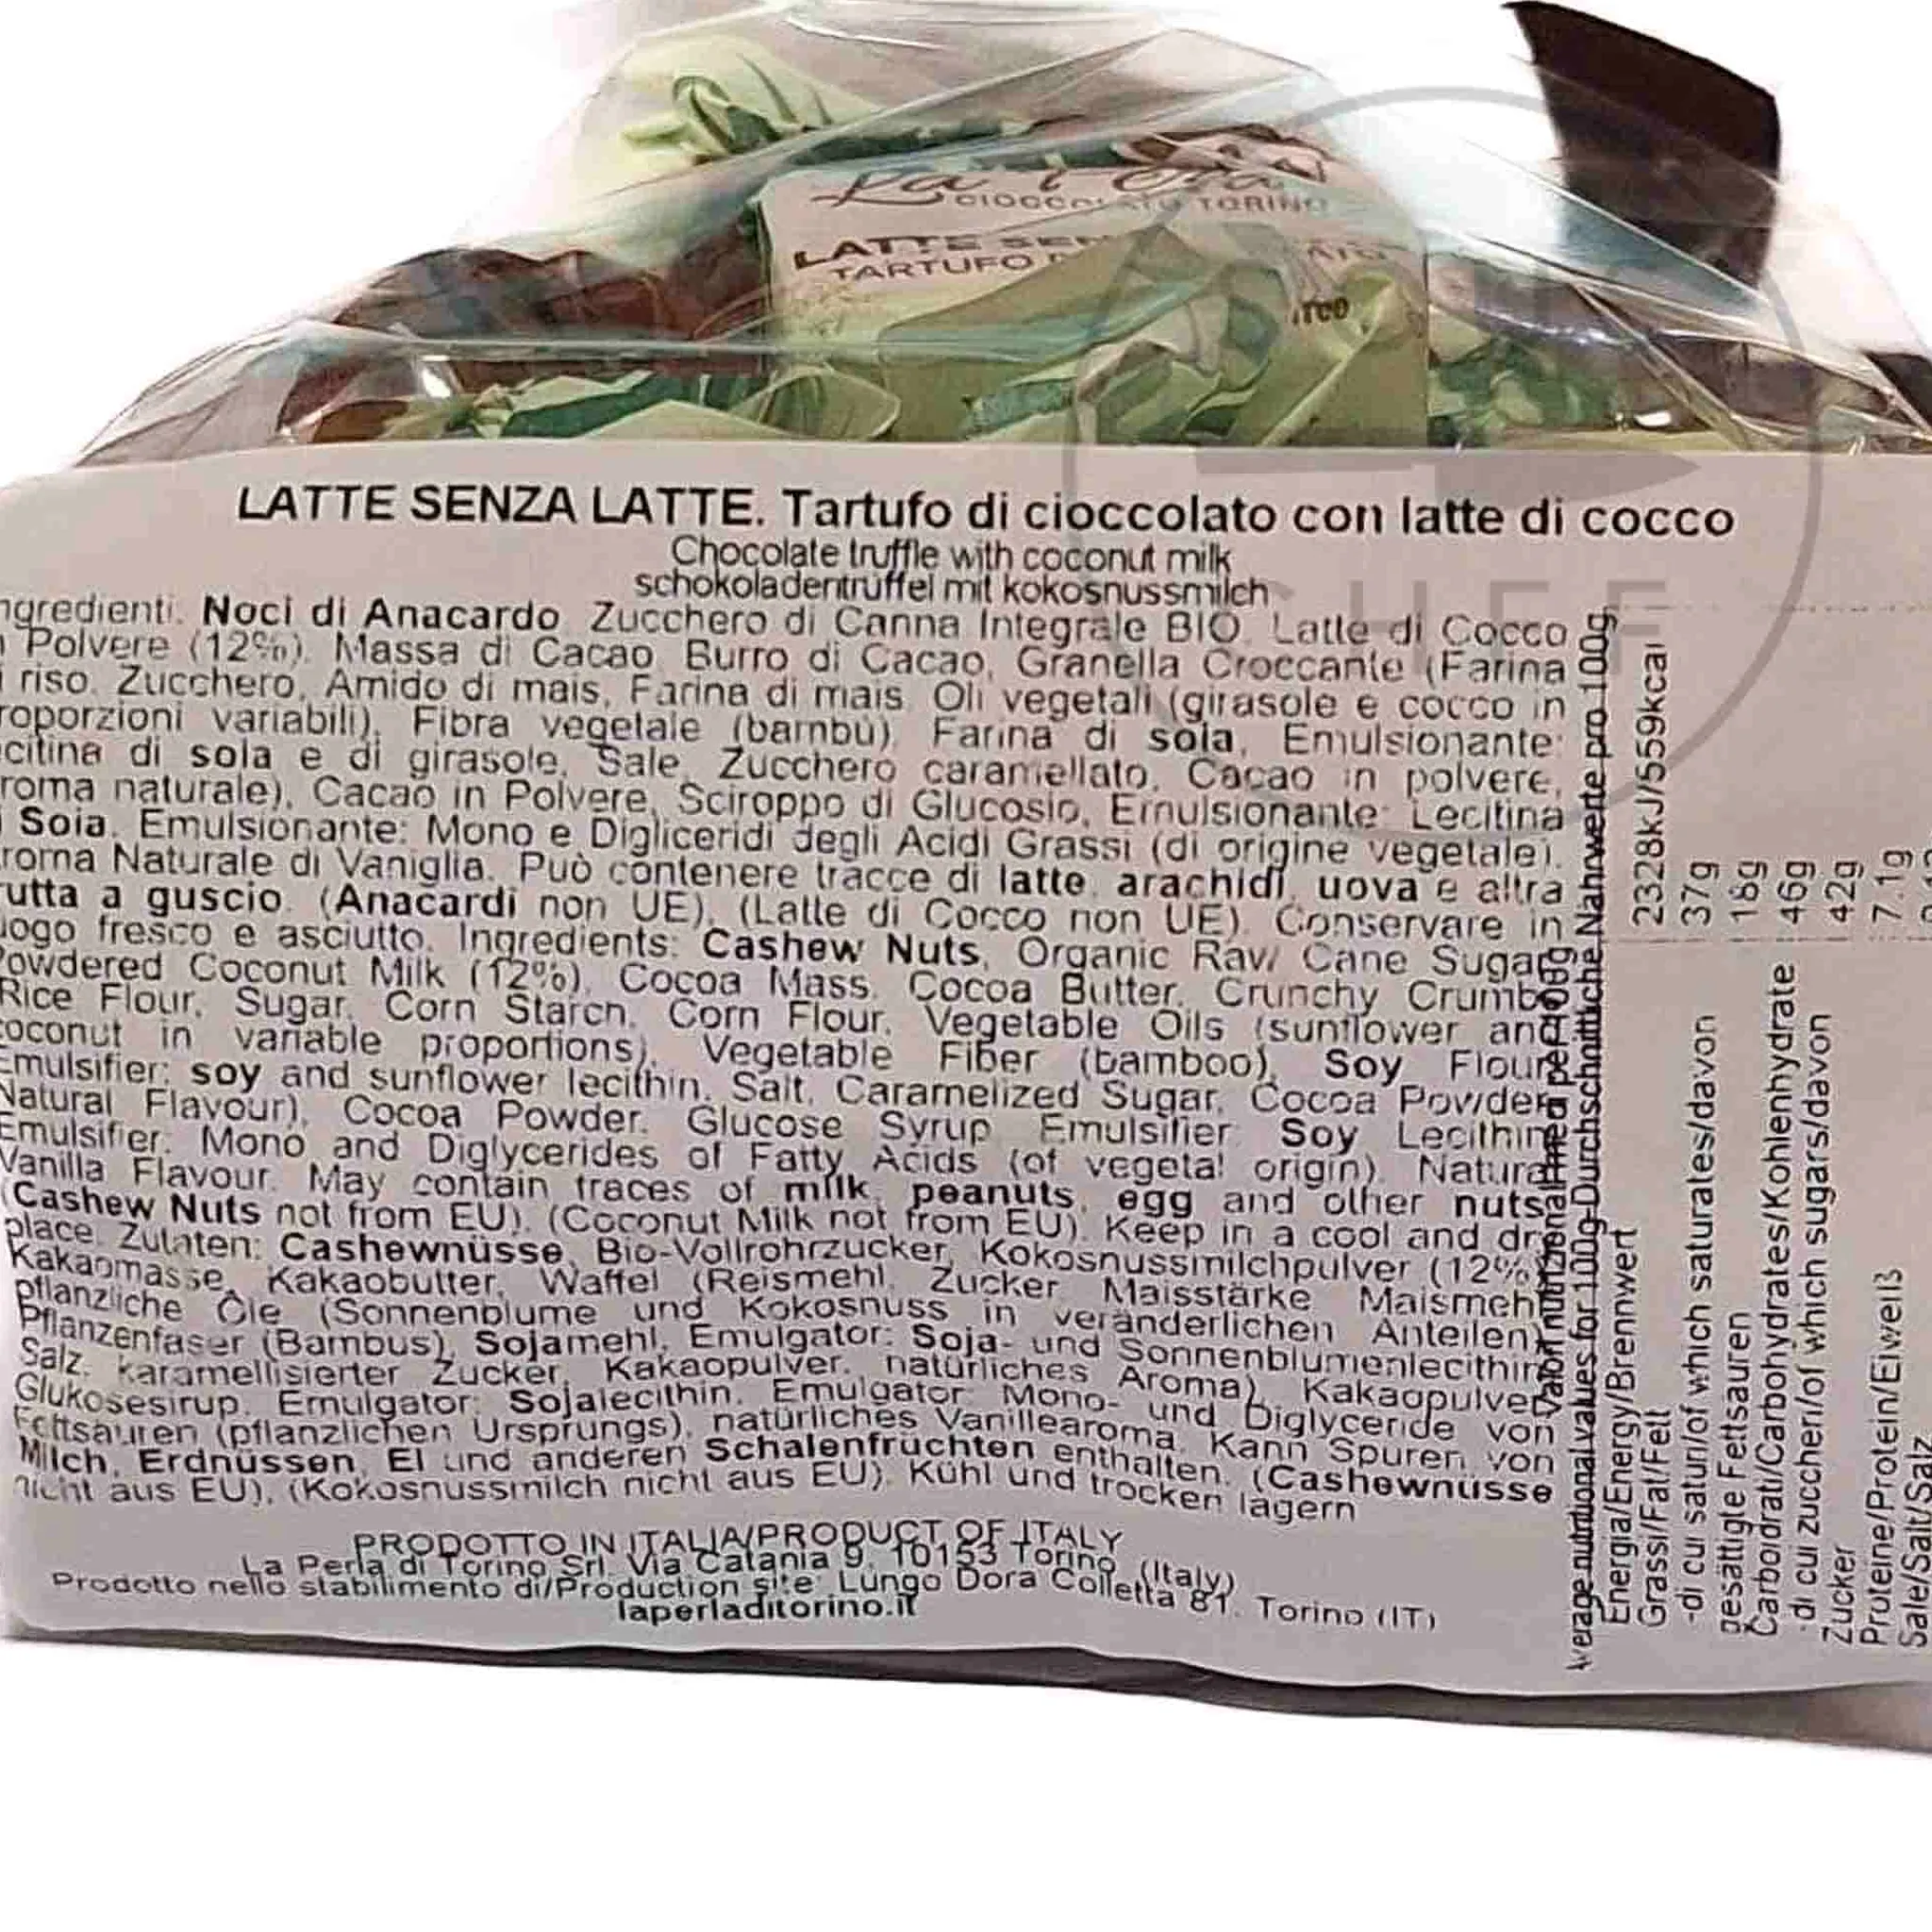 CIOCCOLATO TORINO
LATTE
TARTUFO
LATTE SENZA LATTE. Tartufo di cioccolato con latte di cocco
Chocolate truffle with coconut milk
schokoladentrüffel mit kokosnussmilch
ngredienti. Noci di Anacardo Zucchero di Canna Integrale BIO. Latte di Cocco
n Polvere (12%). Massa di Cacao, Burro di Cacao, Granella Croccante (Farina
i riso, Zucchero, Amido di mais, Farina di mais Oli vegetali (girasole e cocco in
roporzioni variabili), Fibra vegetale (bambù), Farina di soia, Emulsionante:
ecitina di soia e di girasole, Sale, Zucchero caramellato, Cacao in polvere,
roma naturale), Cacao in Polvere, Sciroppo di Glucosio, Emulsionante: Lecitina
i Soia. Emulsionante: Mono e Digliceridi degli Acidi Grassi (di origine vegetale).
roma Naturale di Vaniglia. Può contenere tracce di latte, arachidi, uova e altra
rutta a guscio. (Anacardi non UE). (Latte di Cocco non UE). Conservare in
uogo fresco e asciutto. Ingredients: Cashew Nuts, Organic Raw Cane Sugar
Powdered Coconut Milk (12%), Cocoa Mass, Cocoa Butter, Crunchy Crumb
Rice Flour, Sugar, Corn Starch, Corn Flour, Vegetable Oils (sunflower and
coconut in variable proportions), Vegetable Fiber (bamboo), Soy Flour
Emulsifier: soy and sunflower lecithin, Salt, Caramelized Sugar, Cocoa Powder
Natural Flavour), Cocoa Powder, Glucose Syrup Emulsifier: Soy Lecithin
Emulsifier: Mono and Diglycerides of Fatty Acids (of vegetal origin). Natural
Vanilla Flavour. May contain traces of milk, peanuts, egg and other nuts
(Cashew Nuts not from EU). (Coconut Milk not from EU). Keep in a cool and dry
place. Zutaten: Cashewnüsse, Bio-Vollrohrzucker, Kokosnussmilchpulver (12%)
Kakaomasse, Kakaobutter, Waffel (Reismehl, Zucker Maisstärke Maismehl
pflanzliche Öle (Sonnenblume und Kokosnuss in veränderlichen Anteilen)
Pflanzenfaser (Bambus), Sojamehl, Emulgator: Soja- und Sonnenblumenlecithin
Salz, karamellisierter Zucker, Kakaopulver, natürliches Aroma), Kakaopulver
Glukosesirup, Emulgator: Sojalecithin, Emulgator: Mono- und Diglyceride von
Fettsäuren (pflanzlichen Ursprungs), natürliches Vanillearoma. Kann Spuren von
Milch, Erdnüssen, Ei und anderen Schalenfrüchten enthalten. (Cashewnüsse
nicht aus EU), (Kokosnussmilch nicht aus EU). Kühl und trocken lagern
PRODOTTO IN ITALIA/PRODUCT OF ITALY
La Perla di Torino Srl Via Catania 9, 10153 Torino (Italy)
Prodotto nello stabilimento di/Production site: Lungo Dora Colletta 81. Torino (IT)
laperladitorino.it
Valori nutrizionali medi per 100g
Average nutritional values for 100g-Durchschnittliche Nährwerte pro 100g
Energia/Energy/Brennwert 2328kJ/559kcal
Grassi/Fat/Fett 37g
-di cui saturi/of which saturates/davon 18g
gesättigte Fettsäuren
Carboidrati/Carbohydrates/Kohlenhydrate 46g
- di cui zuccheri/of which sugars/davon 42g
Zucker
Proteine/Protein/Eiweiß 7.1g
Sale/Salt/Salz
CHEF